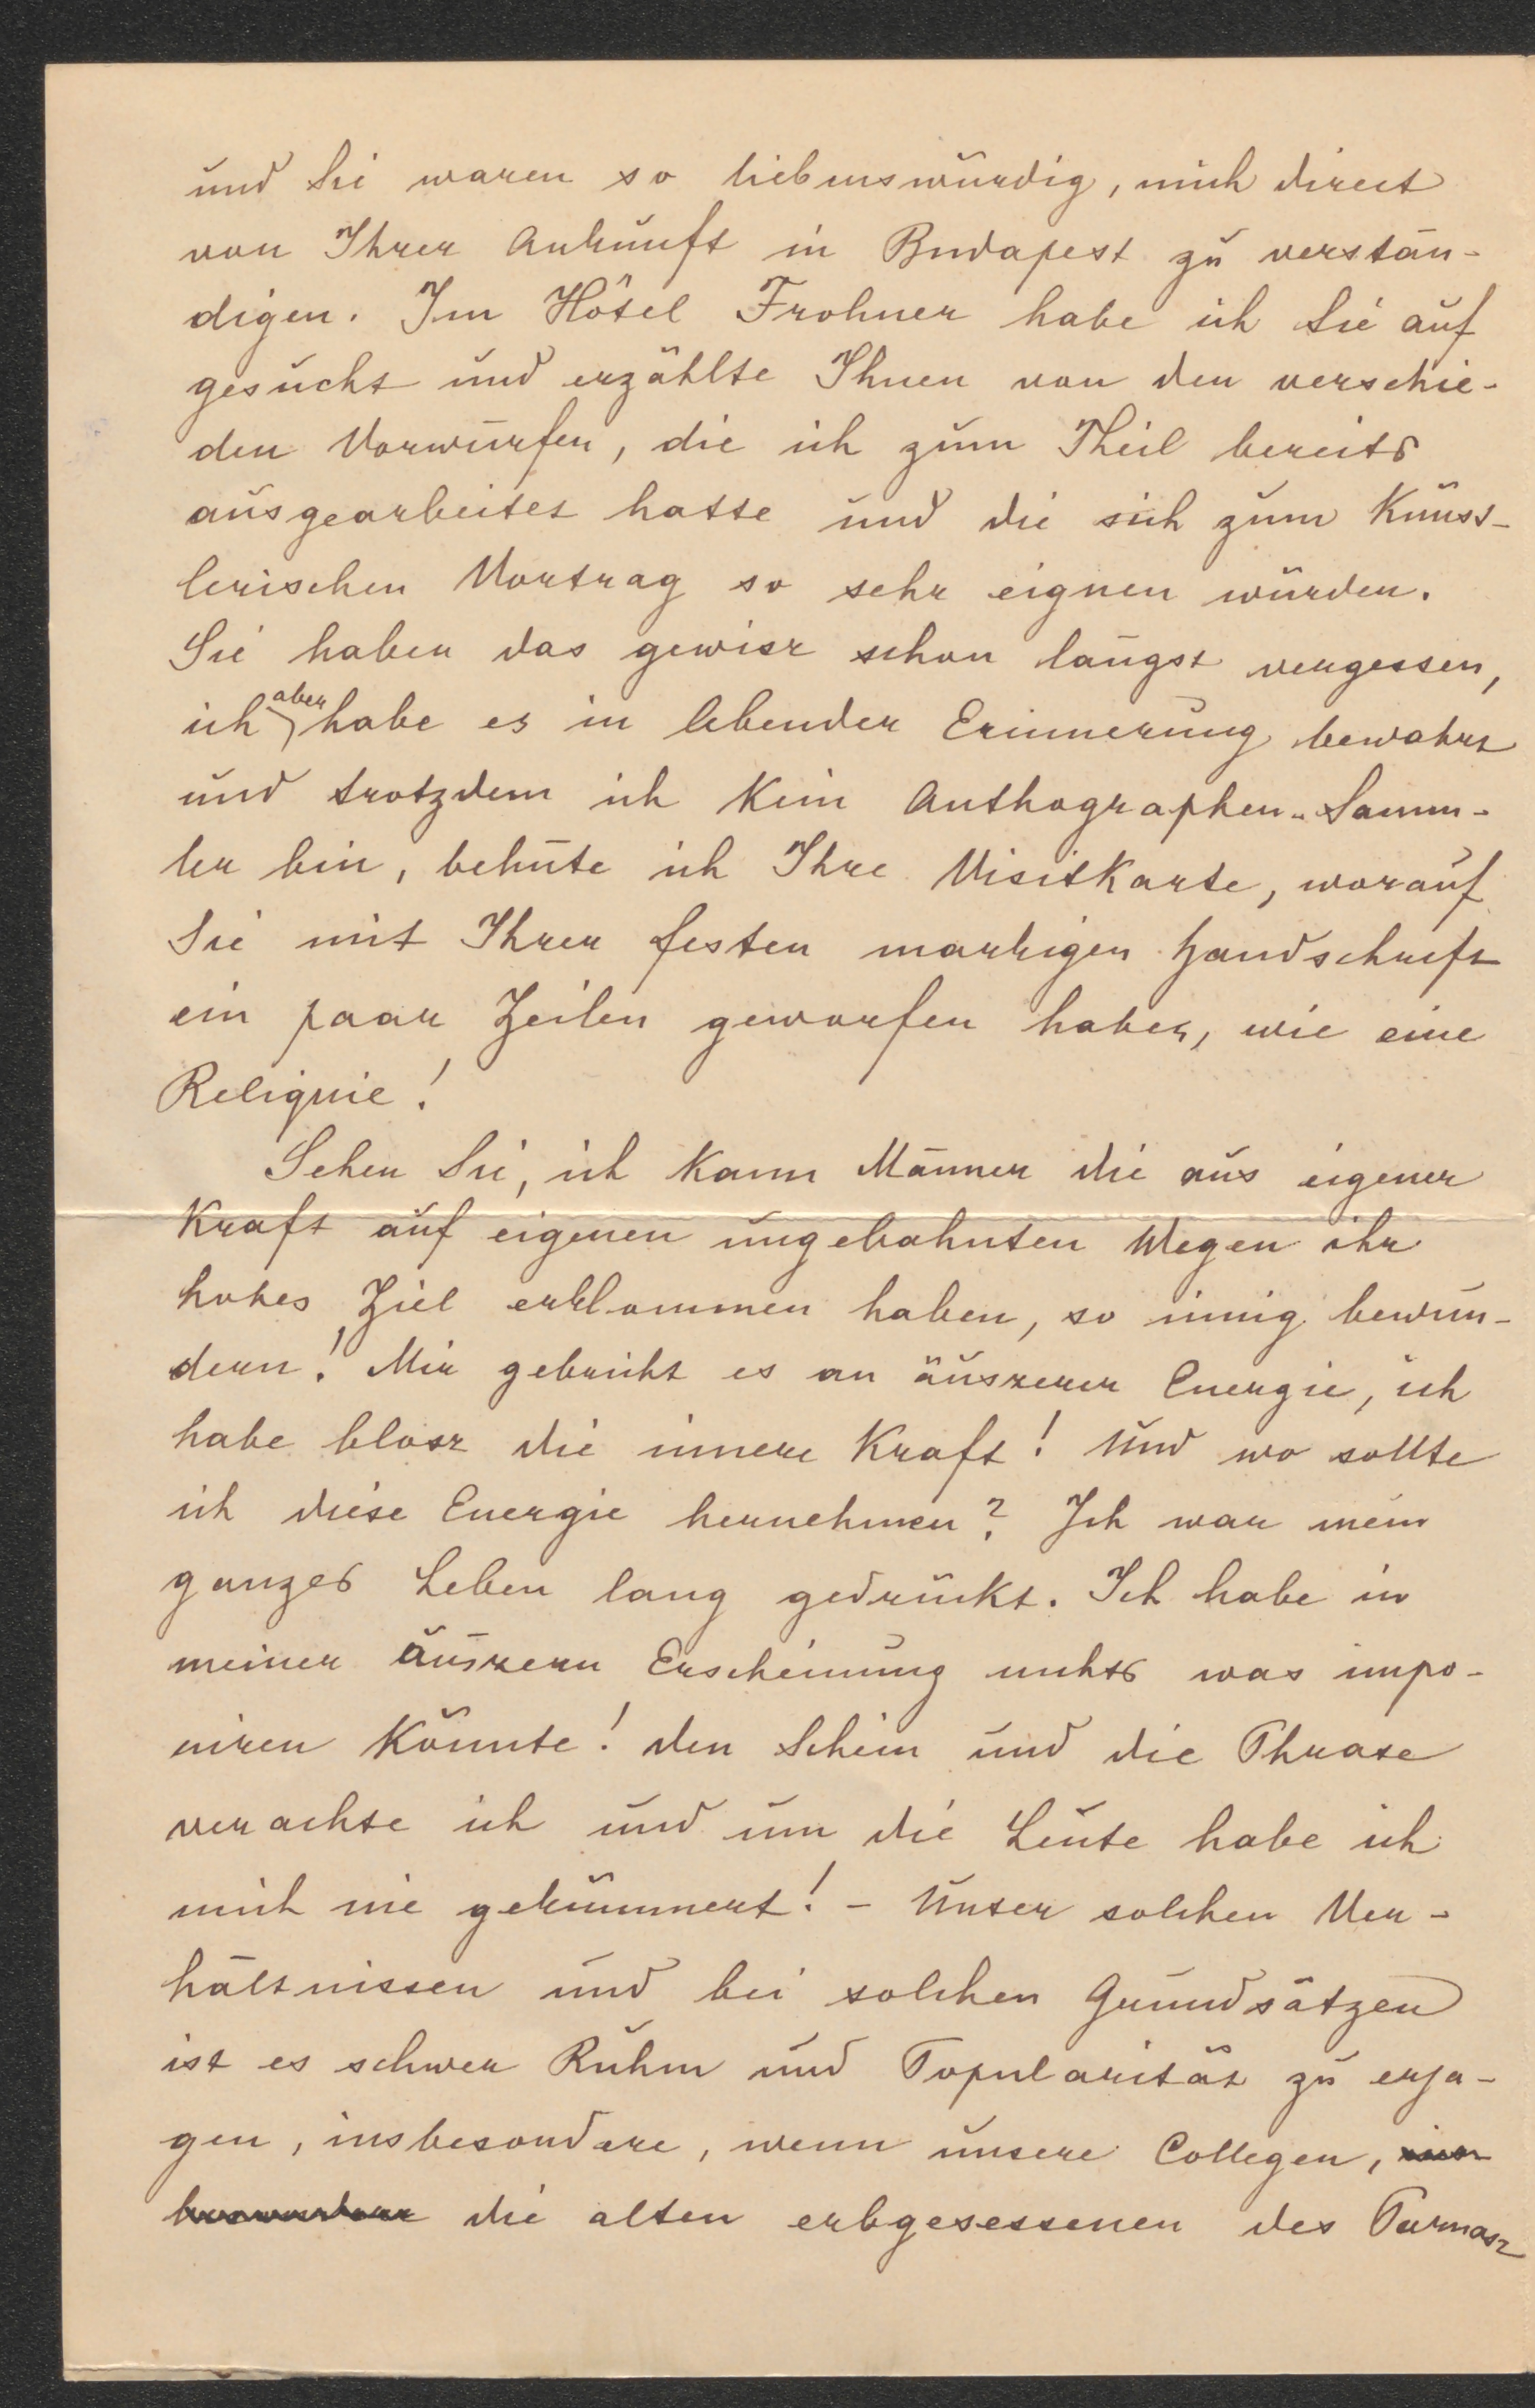 und Sie waren so liebenswürdig, mich direct
von Ihrer Ankunft in Budapest zu verstän-
digen. Im Hôtel Frohner habe ich Sie auf
gesucht und erzählte Ihnen von den verschie-
den Vorwürfen, die ich zum Theil bereits
ausgearbeitet hatte und die sich zum Künst-
lerischen Vortrag so sehr eignen würden.
Sie haben das gewisz schon längst vergessen,
ich aber habe es in lebender Erinnerung bewahrt
und trotzdem ich Kein Authographen-Samm-
ler bin, behüte ich Ihre VisitKarte, worauf
Sie mit Ihrer festen markigen Handschrift
ein paar Zeilen geworfen haben, wie eine
Reliquie!
Sehen Sie, ich Kann Männer die aus eigener
Kraft auf eigenen ungebahnten Wegen ihr
hohes Ziel erklommen haben, so innig bewun-
dern! Mir gebricht es an äuszerer Energie, ich
habe blosz die innere Kraft! Und wo sollte
ich diese Energie hernehmen? Ich war mein
ganzes Leben lang gedrückt. Ich habe in
meiner äuszern Erscheinung nichts was impo-
niren Könnte! den Schein und die Phrase
verachte ich und um die Leute habe ich
mich nie gekümmert! - Unter solchen Ver-
hältnissen und bei solchen Grundsätzen
ist es schwer Ruhm und Popularität zu erja-
gen, insbesondere, wenn unsere Collegen,
die alten erbgesessenen des Parnasz